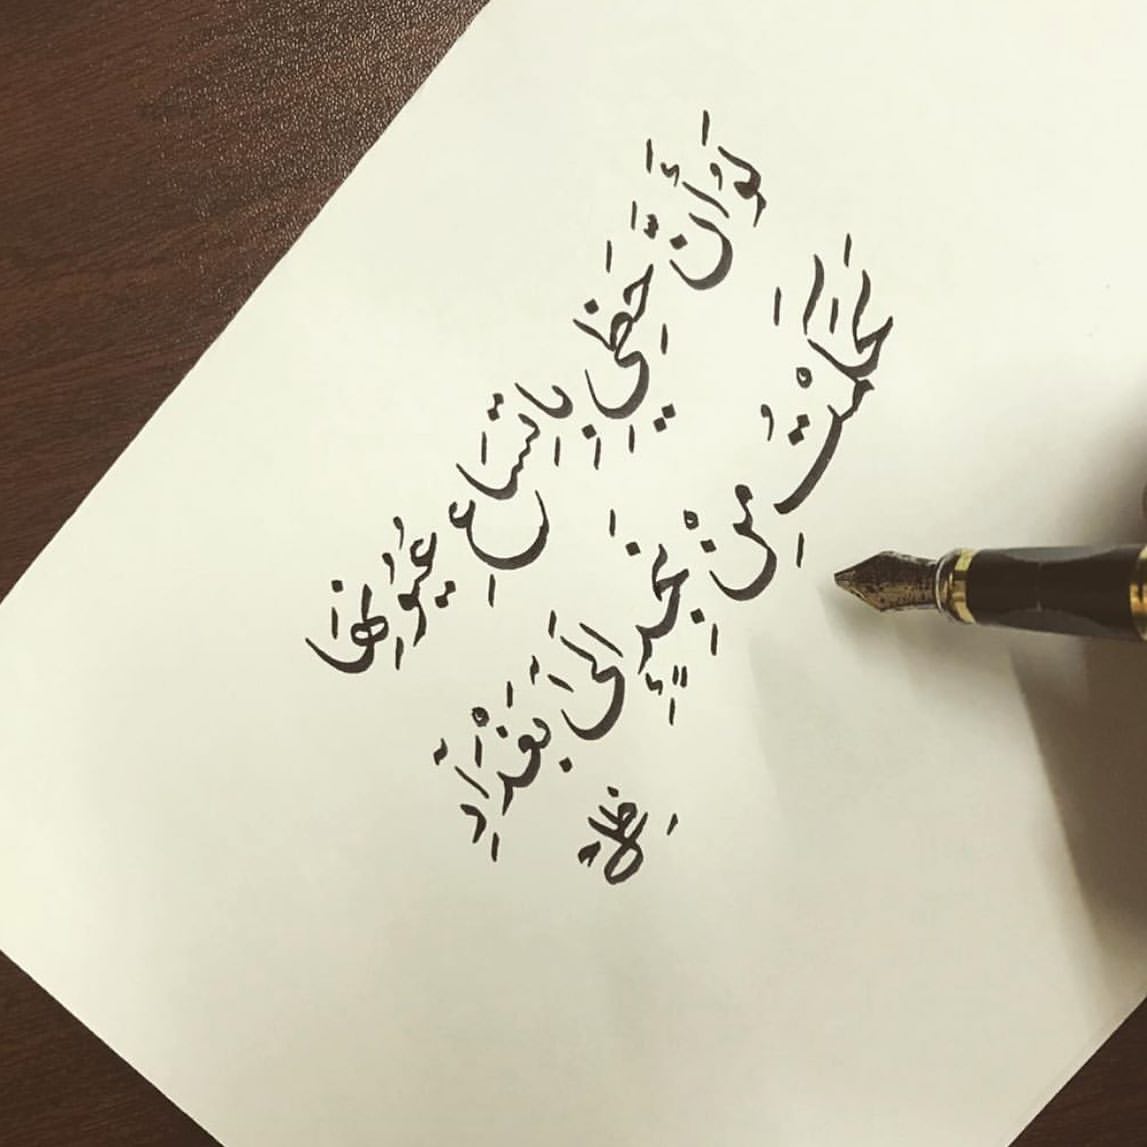 لَوُ أَنَّ حَظِي بِاتِسَاعِ عُيُونِهَا
لَحَكَمْتُ مِنْ نَجْدٍ إلَى بَغْدَادِ